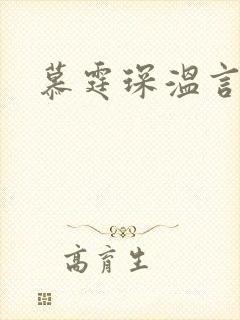 慕霆琛温言
高育生